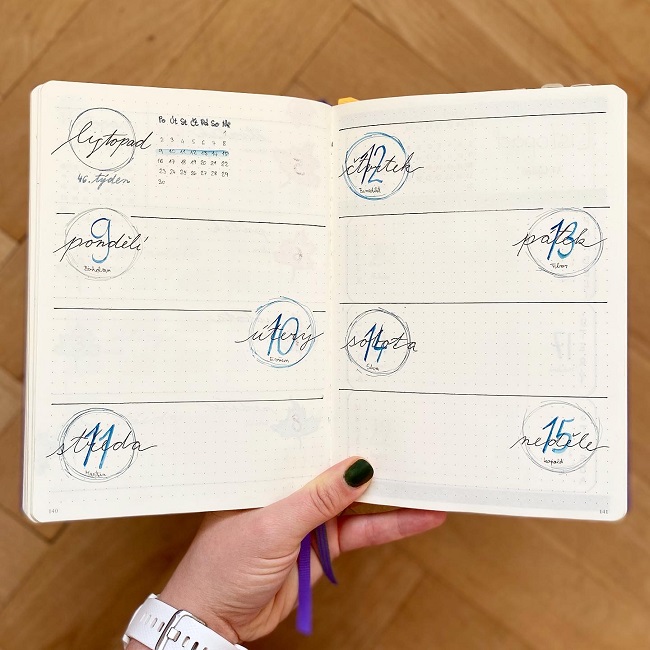 listopad
46. týden
Po Út St Čt Pá So Ne
1
2 3 4 5 6 7 8
9 10 11 12 13 14 15
16 17 18 19 20 21 22
23 24 25 26 27 28 29
30
pondělí
9
Bohdan
úterý
10
středa
11
Martin
140
čtvrtek
12
Benedikt
pátek
13
Tibor
sobota
14
Sáva
neděle
15
Leopold
141